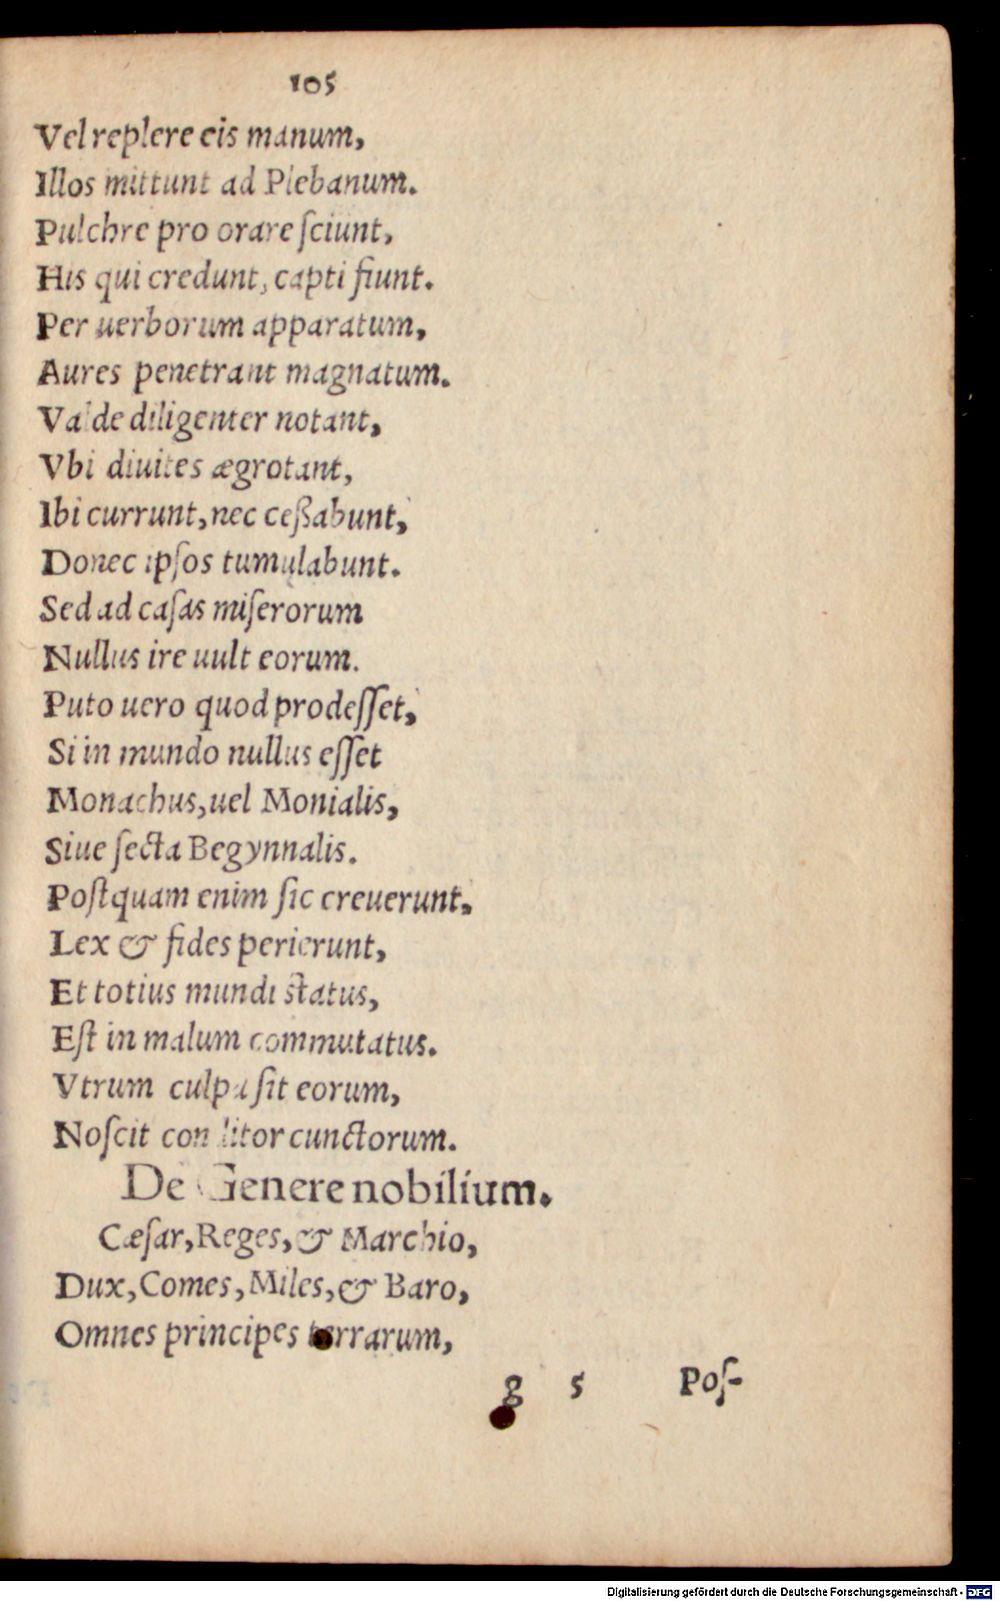 105
Vel replere eis manum,
Illos mittunt ad Plebanum.
Pulchre pro orare ſciunt,
His qui credunt, capti fiunt.
Per uerborum apparatum,
Aures penetrant magnatum.
Valde diligenter notant,
Vbi diuites ægrotant,
Ibi currunt, nec ceßabunt,
Donec ipſos tumulabunt.
Sed ad caſas miſerorum
Nullus ire uult eorum.
Puto uero quod prodeſſet,
Si in mundo nullus eſſet
Monachus, uel Monialis,
Siue ſecta Begynnalis.
Poſtquam enim ſic creuerunt,
Lex & fides perierunt,
Et totius mundi ſtatus,
Eſt in malum commutatus.
Vtrum culpa ſit eorum,
Noſcit conditor cunctorum.
De Genere nobilium.
Cæſar, Reges, & Marchio,
Dux, Comes, Miles, & Baro,
Omnes principes terrarum,
g 5 Poſ-
Digitalisierung gefördert durch die Deutsche Forschungsgemeinschaft - DFG